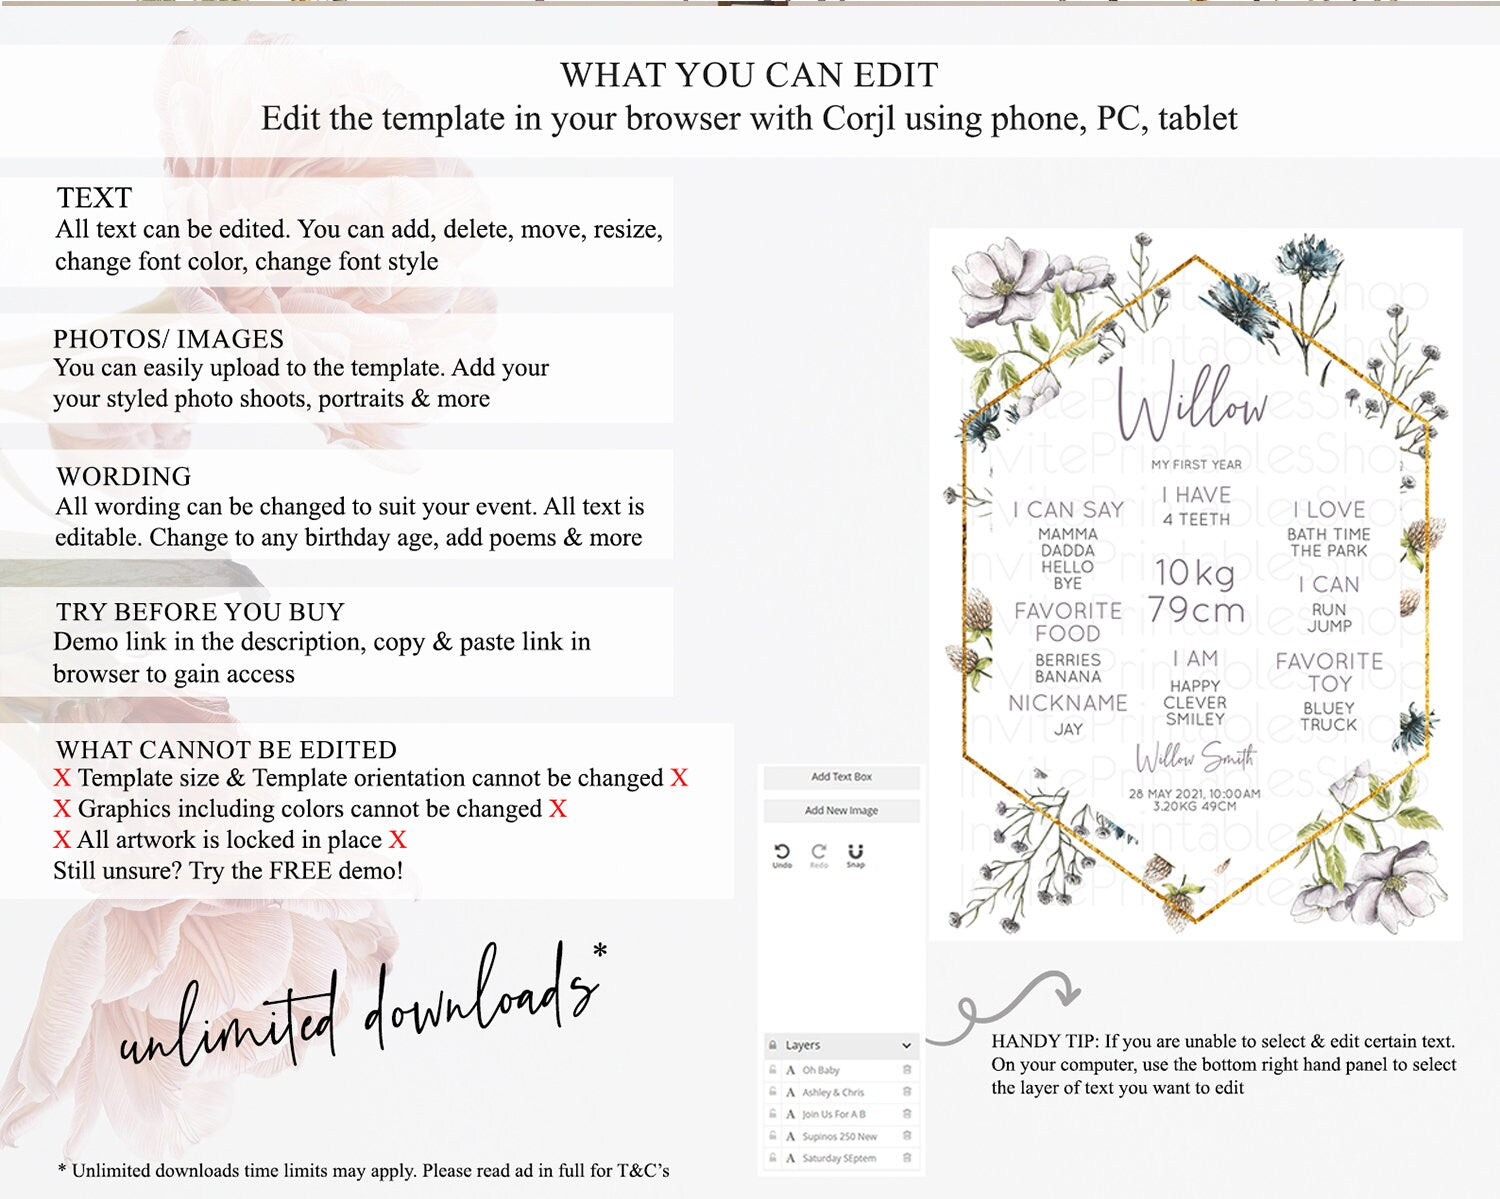 WHAT YOU CAN EDIT
Edit the template in your browser with Corjl using phone, PC, tablet
TEXT
All text can be edited. You can add, delete, move, resize,
change font color, change font style
PHOTOS/ IMAGES
You can easily upload to the template. Add your
your styled photo shoots, portraits & more
WORDING
All wording can be changed to suit your event. All text is
editable. Change to any birthday age, add poems & more
TRY BEFORE YOU BUY
Demo link in the description, copy & paste link in
browser to gain access
WHAT CANNOT BE EDITED
X Template size & Template orientation cannot be changed X
X Graphics including colors cannot be changed X
X All artwork is locked in place X
Still unsure? Try the FREE demo!
unlimited downloads*
* Unlimited downloads time limits may apply. Please read ad in full for T&C's
Willow
MY FIRST YEAR
I CAN SAY
MAMMA
DADDA
HELLO
BYE
FAVORITE
FOOD
BERRIES
BANANA
NICKNAME
JAY
I HAVE
4 TEETH
10kg
79cm
I AM
HAPPY
CLEVER
SMILEY
I LOVE
BATH TIME
THE PARK
I CAN
RUN
JUMP
FAVORITE
TOY
BLUEY
TRUCK
Willow Smith
28 MAY 2021, 10:00AM
3.20KG 49CM
InvitePrintablesShop
InvitePrintablesShop
InvitePrintablesShop
InvitePrintablesShop
InvitePrintablesShop
InvitePrintablesShop
Add Text Box
Add New Image
Undo Redo Snap
Layers
A Oh Baby
A Ashley & Chris
A Join Us For A B
A Supinos 250 New
A Saturday SEptem
HANDY TIP: If you are unable to select & edit certain text.
On your computer, use the bottom right hand panel to select
the layer of text you want to edit